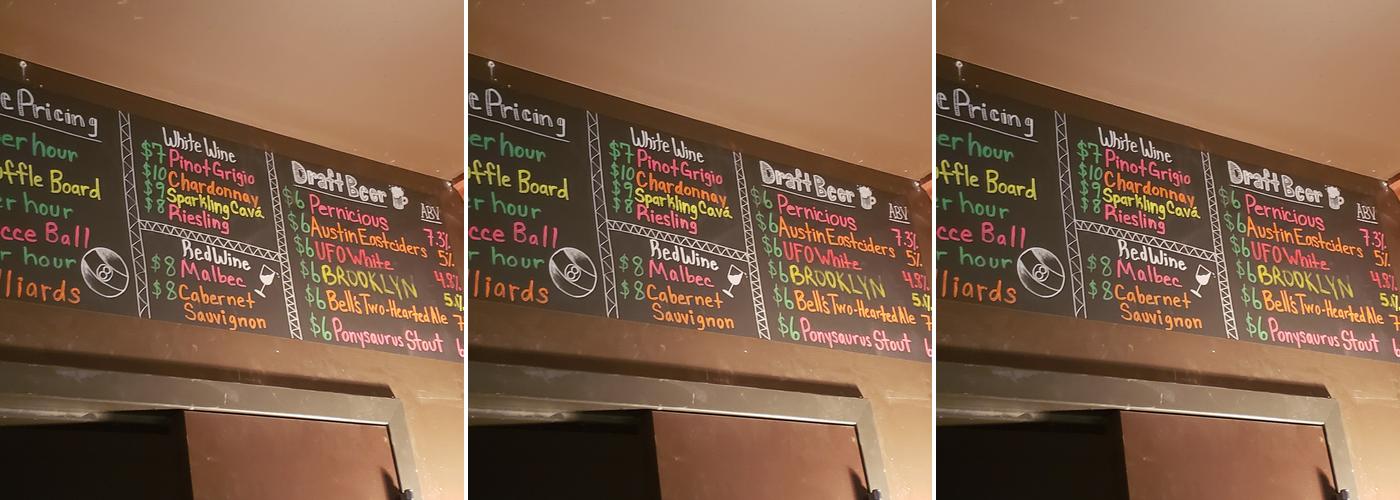 e Pricing
er hour
ffle Board
er hour
cce Ball
r hour
lliards
White Wine
$7 Pinot Grigio
$10 Chardonnay
$9 Sparkling Cavá
$8 Riesling
Red Wine
$8 Malbec
$8 Cabernet
Sauvignon
Draft Beer
ABV
$6 Pernicious 7.3%
$6 Austin Eastciders 5%
$6 UFO White 4.8%
$6 BROOKLYN
$6 Bell's Two-Hearted Ale
$6 Ponysaurus Stout
e Pricing
er hour
ffle Board
er hour
cce Ball
r hour
lliards
White Wine
$7 Pinot Grigio
$10 Chardonnay
$9 Sparkling Cavá
$8 Riesling
Red Wine
$8 Malbec
$8 Cabernet
Sauvignon
Draft Beer
ABV
$6 Pernicious 7.3%
$6 Austin Eastciders 5%
$6 UFO White 4.8%
$6 BROOKLYN
$6 Bell's Two-Hearted Ale
$6 Ponysaurus Stout
e Pricing
er hour
ffle Board
er hour
cce Ball
r hour
lliards
White Wine
$7 Pinot Grigio
$10 Chardonnay
$9 Sparkling Cavá
$8 Riesling
Red Wine
$8 Malbec
$8 Cabernet
Sauvignon
Draft Beer
ABV
$6 Pernicious 7.3%
$6 Austin Eastciders 5%
$6 UFO White 4.8%
$6 BROOKLYN
$6 Bell's Two-Hearted Ale
$6 Ponysaurus Stout